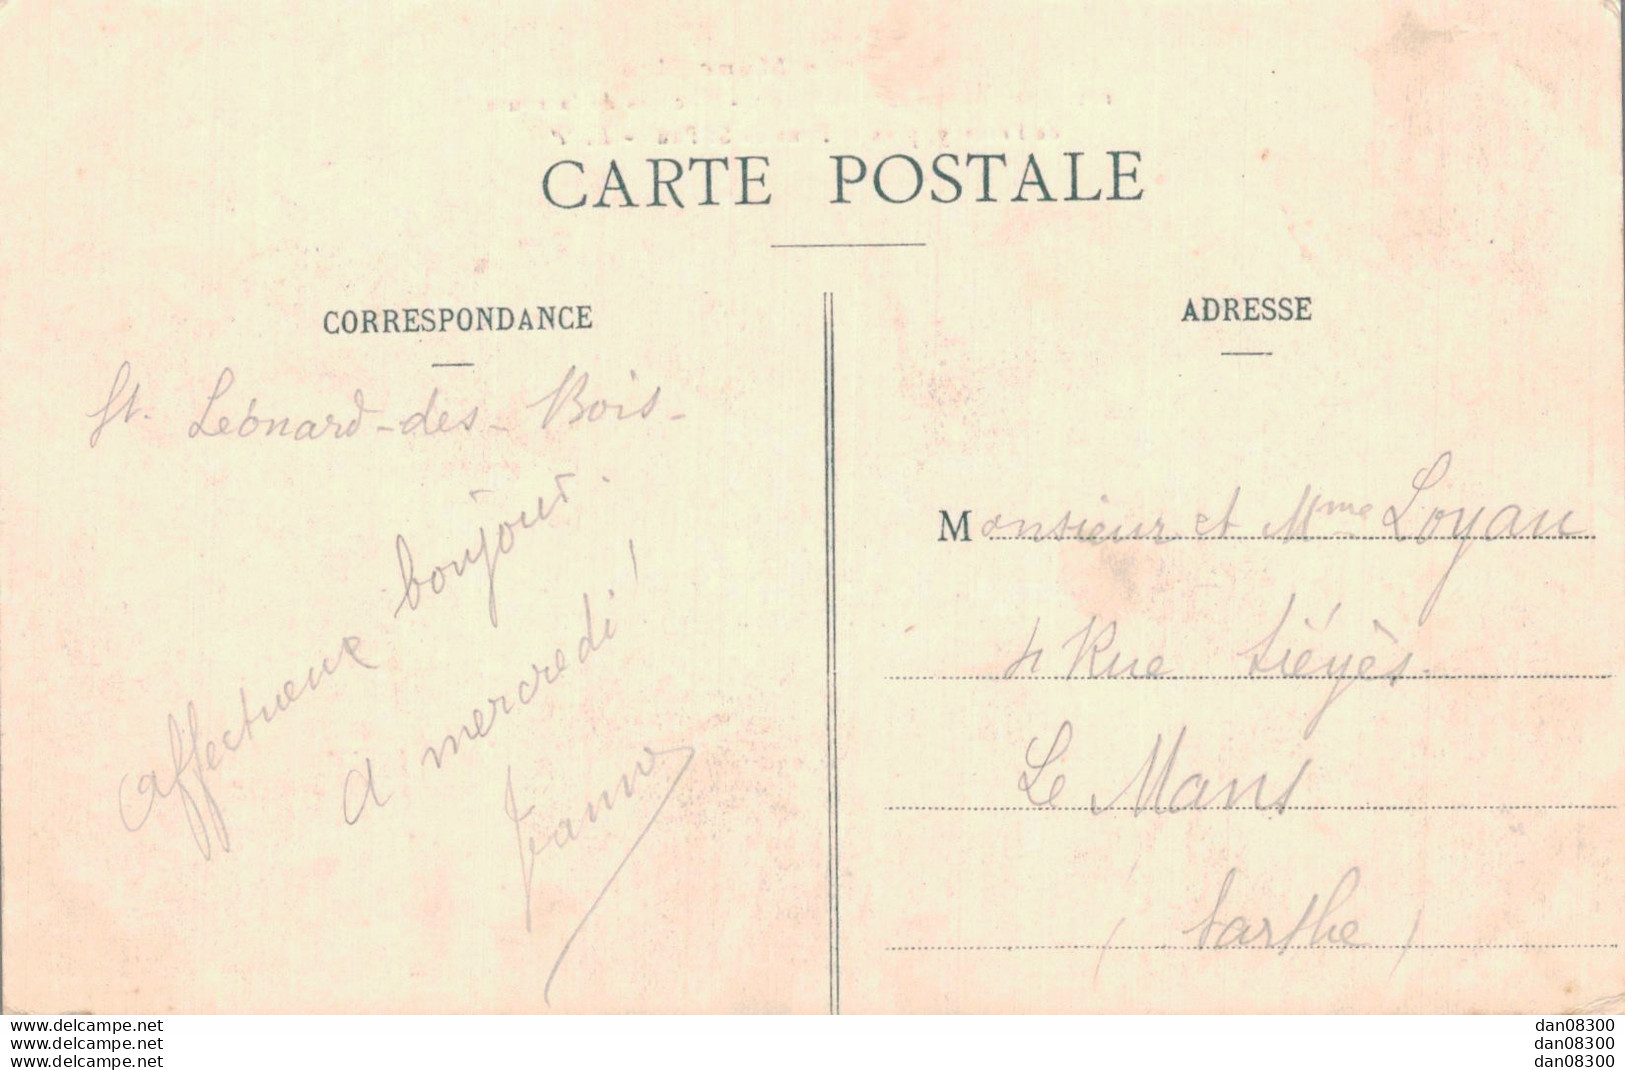 CARTE POSTALE
CORRESPONDANCE
St. Léonard-des-Bois-
Affectueux bonjour.
A mercredi!
ADRESSE
Monsieur et Mme Loyau
4 Rue Siéyès.
Le Mans
(Sarthe)
www.delcampe.net
www.delcampe.net
www.delcampe.net
dan08300
dan08300
dan08300